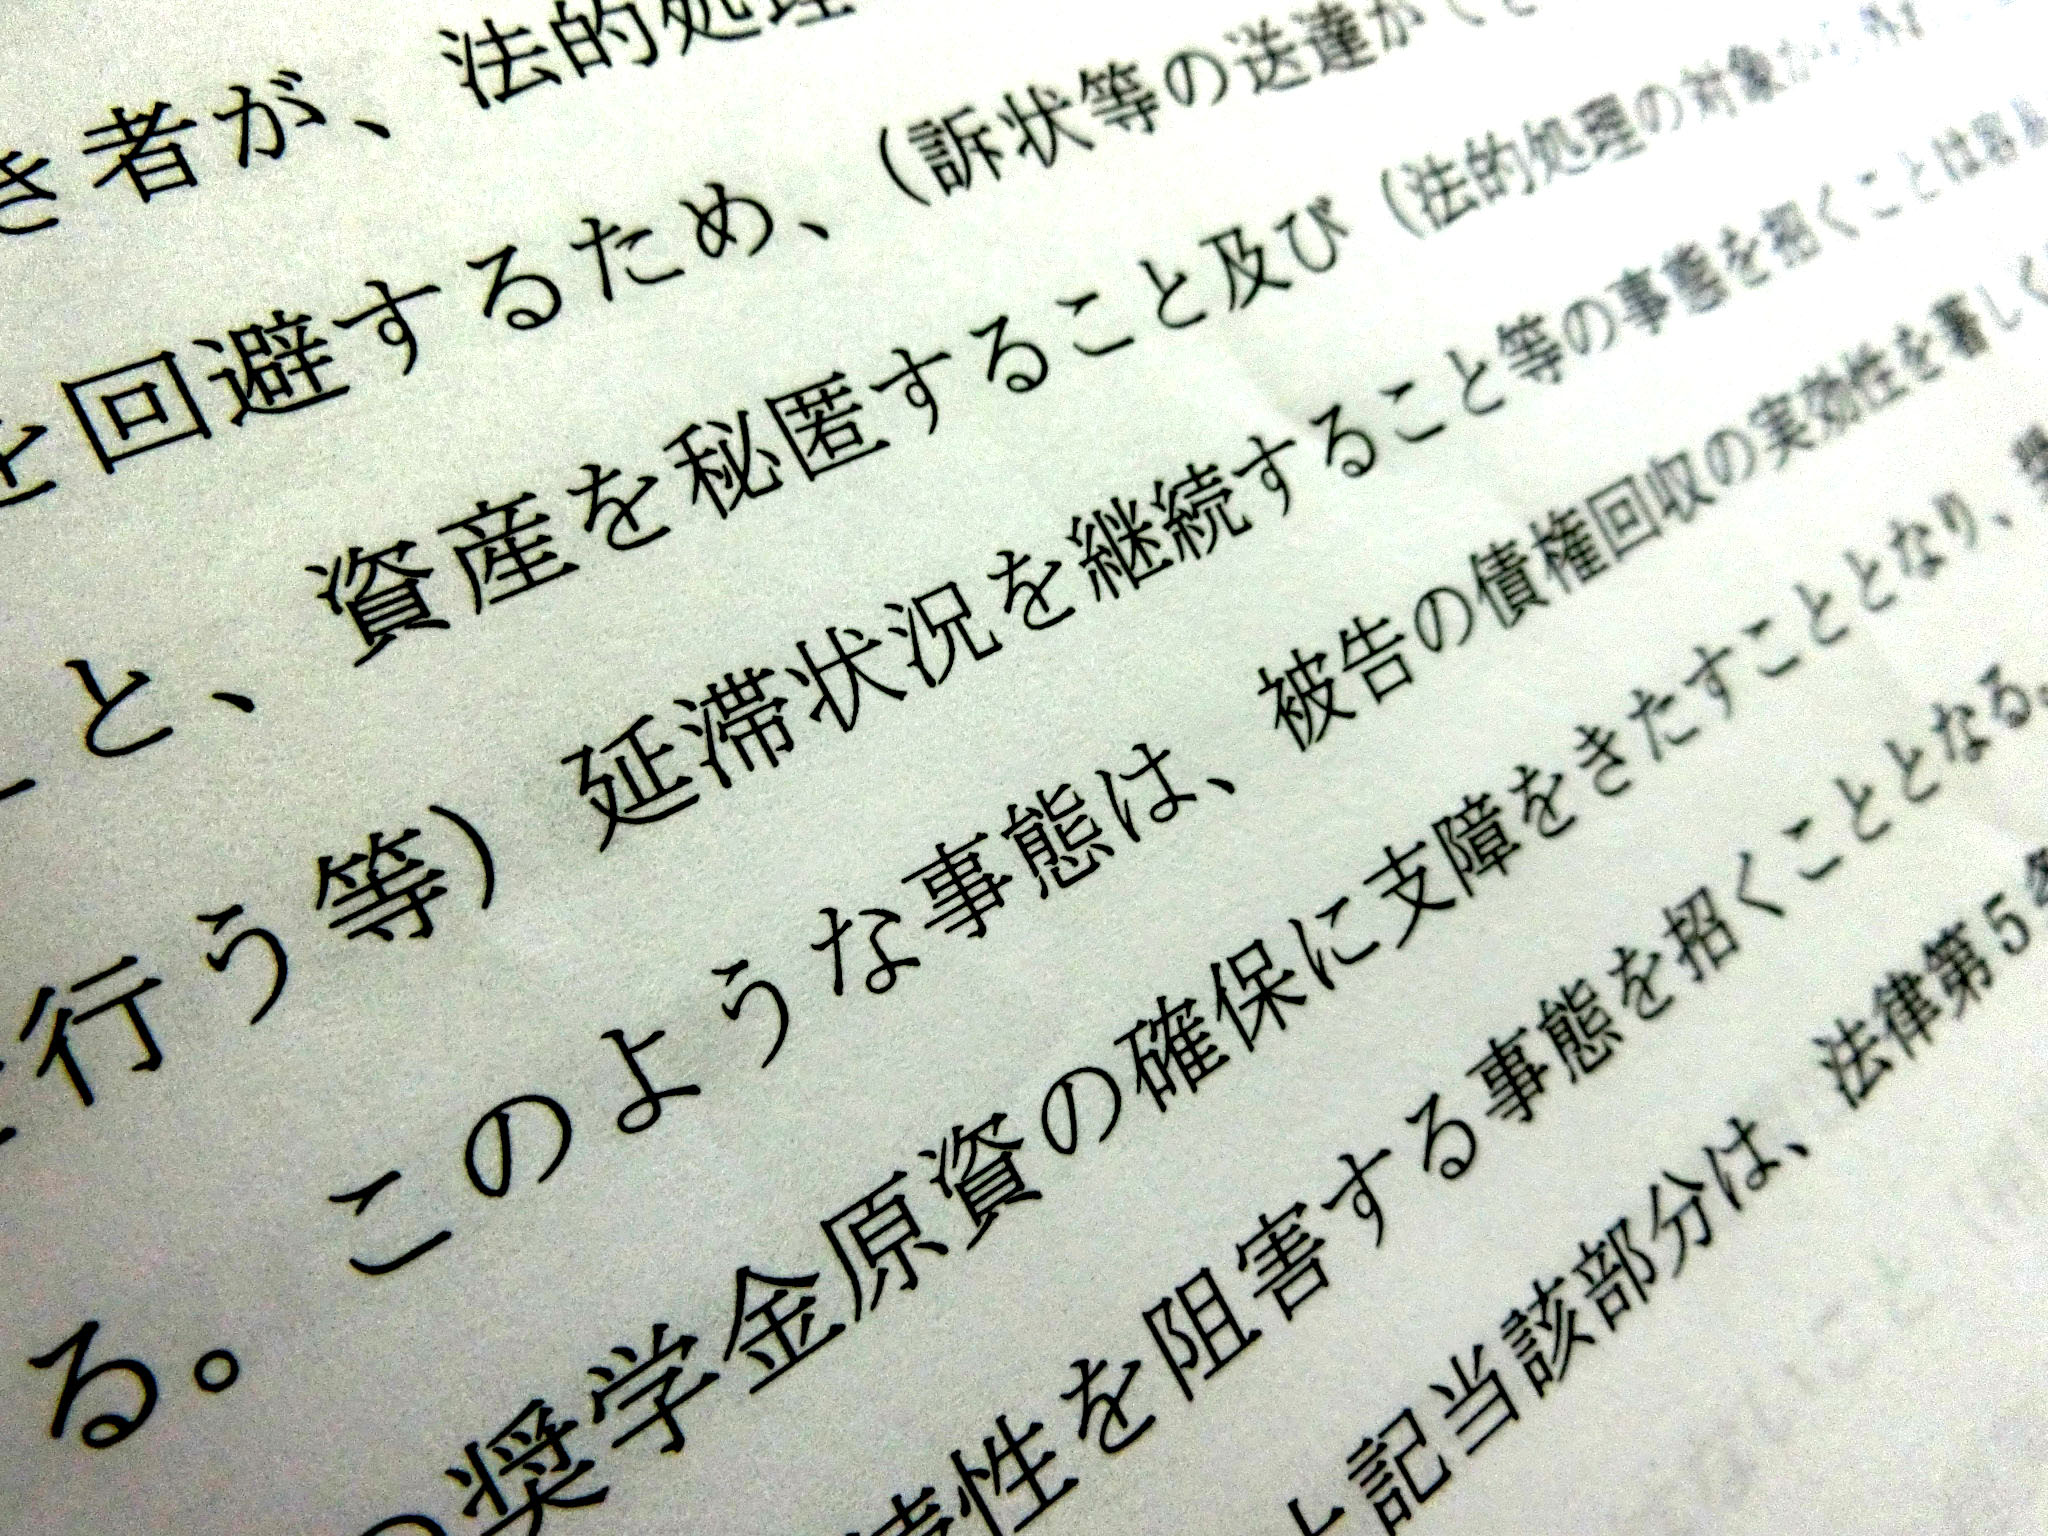 き者が、法的処理
を回避するため、（訴状等の送達ができ
と、資産を秘匿すること及び（法的処理の対象から外
行う等）延滞状況を継続すること等の事態を招くことは容易
る。このような事態は、被告の債権回収の実効性を著しく
の奨学金原資の確保に支障をきたすこととなり、
性を阻害する事態を招くこととなる。
上記当該部分は、法律第５条